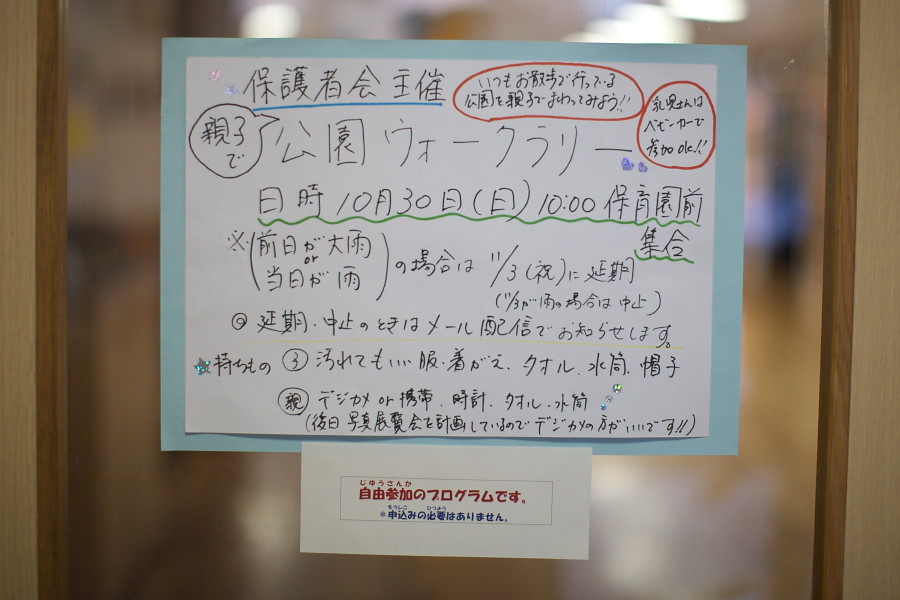 保護者会 主催
いつもお散歩で行っている
公園を親子でまわってみよう!!
乳児さんは
ベビーカーで
参加ok!!
親子
で
公園 ウォークラリー
日時 10月30日(日) 10:00 保育園前
集合
※(前日が大雨 or 当日が雨)の場合は 11/3(祝)に延期
(11/3が雨の場合は中止)
◎ 延期・中止のときはメール配信でお知らせします。
持ちもの 子 汚れてもいい服・着がえ、タオル、水筒、帽子
親 デジカメ or 携帯、時計、タオル、水筒
(後日 写真展覧会を計画しているので デジカメの方がいいです!!)
じゆうさんか
自由参加のプログラムです。
もうしこ ひつよう
※申込みの必要はありません。